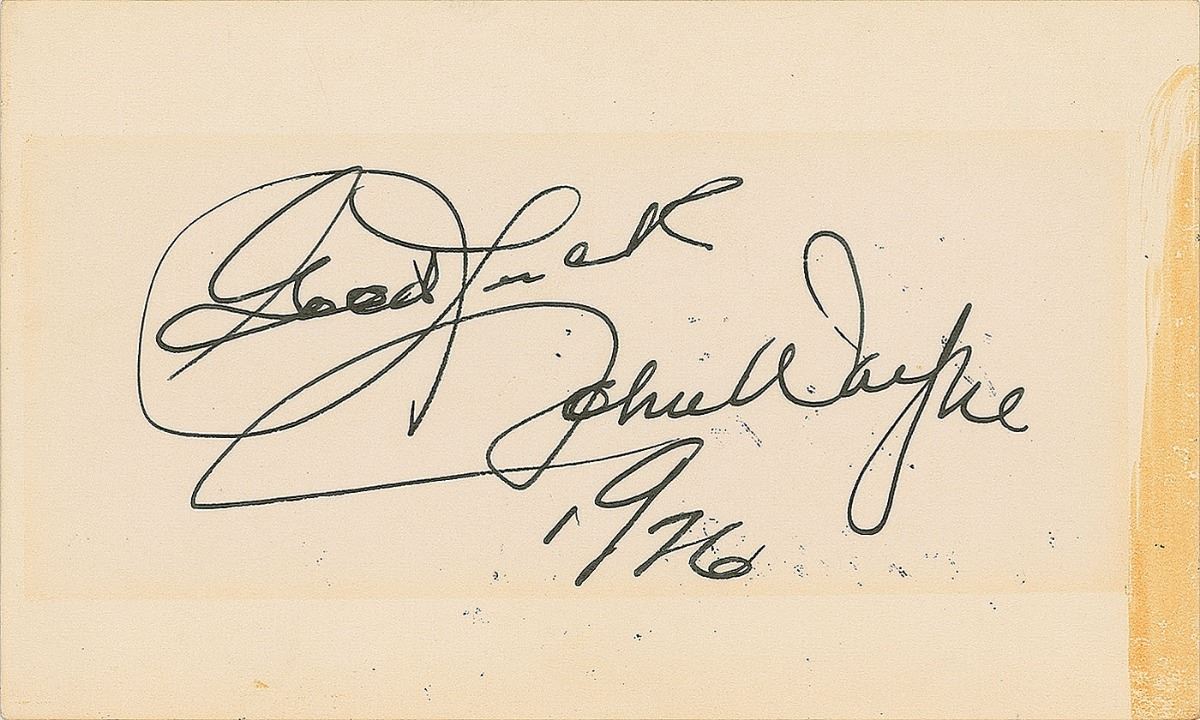 Good Luck
John Wayne
1976